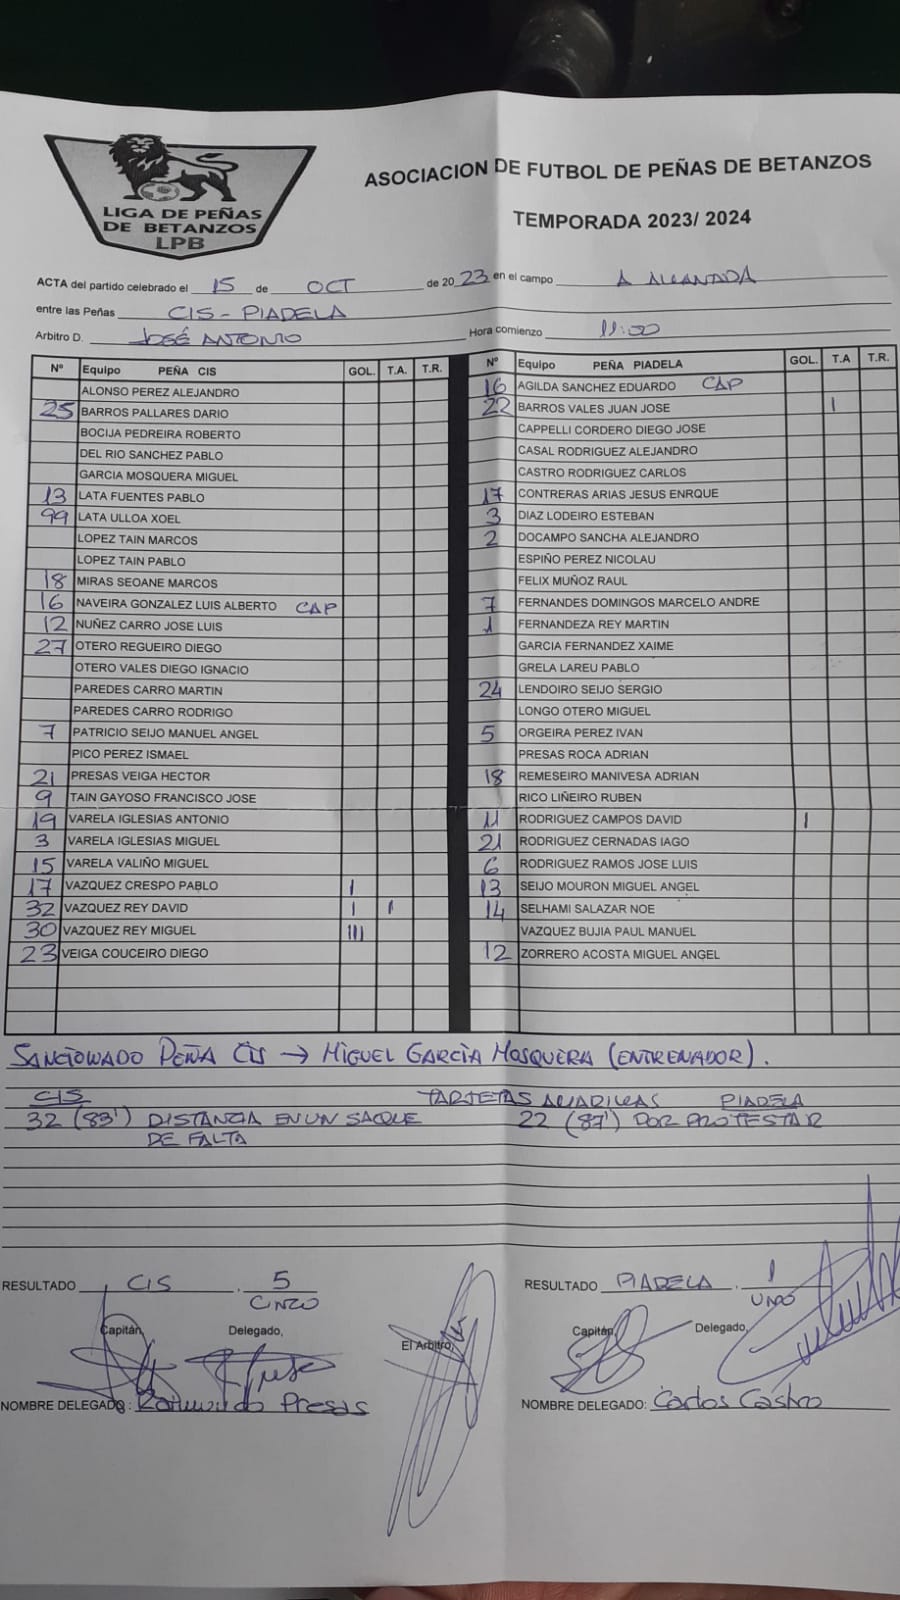 LIGA DE PEÑAS
DE BETANZOS
LPB
ASOCIACION DE FUTBOL DE PEÑAS DE BETANZOS
TEMPORADA 2023/ 2024
ACTA del partido celebrado el 15 de OCT de 2023 en el campo A ALGANADA
entre las Peñas CIS - PIADELA
Arbitro D. JOSÉ ANTONIO Hora comienzo 11:00
Nº Equipo PEÑA CIS GOL. T.A. T.R.
ALONSO PEREZ ALEJANDRO
25 BARROS PALLARES DARIO
BOCIJA PEDREIRA ROBERTO
DEL RIO SANCHEZ PABLO
GARCIA MOSQUERA MIGUEL
13 LATA FUENTES PABLO
99 LATA ULLOA XOEL
LOPEZ TAIN MARCOS
LOPEZ TAIN PABLO
18 MIRAS SEOANE MARCOS
16 NAVEIRA GONZALEZ LUIS ALBERTO CAP
12 NUÑEZ CARRO JOSE LUIS
27 OTERO REGUEIRO DIEGO
OTERO VALES DIEGO IGNACIO
PAREDES CARRO MARTIN
PAREDES CARRO RODRIGO
7 PATRICIO SEIJO MANUEL ANGEL
PICO PEREZ ISMAEL
21 PRESAS VEIGA HECTOR
9 TAIN GAYOSO FRANCISCO JOSE
19 VARELA IGLESIAS ANTONIO
3 VARELA IGLESIAS MIGUEL
15 VARELA VALIÑO MIGUEL
17 VAZQUEZ CRESPO PABLO I
32 VAZQUEZ REY DAVID I I
30 VAZQUEZ REY MIGUEL III
23 VEIGA COUCEIRO DIEGO
Nº Equipo PEÑA PIADELA GOL. T.A T.R.
16 AGILDA SANCHEZ EDUARDO CAP
22 BARROS VALES JUAN JOSE I
CAPPELLI CORDERO DIEGO JOSE
CASAL RODRIGUEZ ALEJANDRO
CASTRO RODRIGUEZ CARLOS
17 CONTRERAS ARIAS JESUS ENRQUE
3 DIAZ LODEIRO ESTEBAN
2 DOCAMPO SANCHA ALEJANDRO
ESPIÑO PEREZ NICOLAU
FELIX MUÑOZ RAUL
7 FERNANDES DOMINGOS MARCELO ANDRE
1 FERNANDEZA REY MARTIN
GARCIA FERNANDEZ XAIME
GRELA LAREU PABLO
24 LENDOIRO SEIJO SERGIO
LONGO OTERO MIGUEL
5 ORGEIRA PEREZ IVAN
PRESAS ROCA ADRIAN
18 REMESEIRO MANIVESA ADRIAN
RICO LIÑEIRO RUBEN
11 RODRIGUEZ CAMPOS DAVID I
21 RODRIGUEZ CERNADAS IAGO
6 RODRIGUEZ RAMOS JOSE LUIS
13 SEIJO MOURON MIGUEL ANGEL
14 SELHAMI SALAZAR NOE
VAZQUEZ BUJIA PAUL MANUEL
12 ZORRERO ACOSTA MIGUEL ANGEL
SANCIONADO PEÑA CIS → MIGUEL GARCÍA MOSQUERA (ENTRENADOR).
CIS TARJETAS AMARILLAS PIADELA
32 (83') DISTANZIA EN UN SAQUE 22 (87') POR PROTESTAR
DE FALTA
RESULTADO CIS . 5 RESULTADO PIADELA . 1
CINCO UNO
Capitán, Delegado, El Arbitro, Capitán, Delegado,
NOMBRE DELEGADO : Raimundo Presas NOMBRE DELEGADO: Carlos Castro